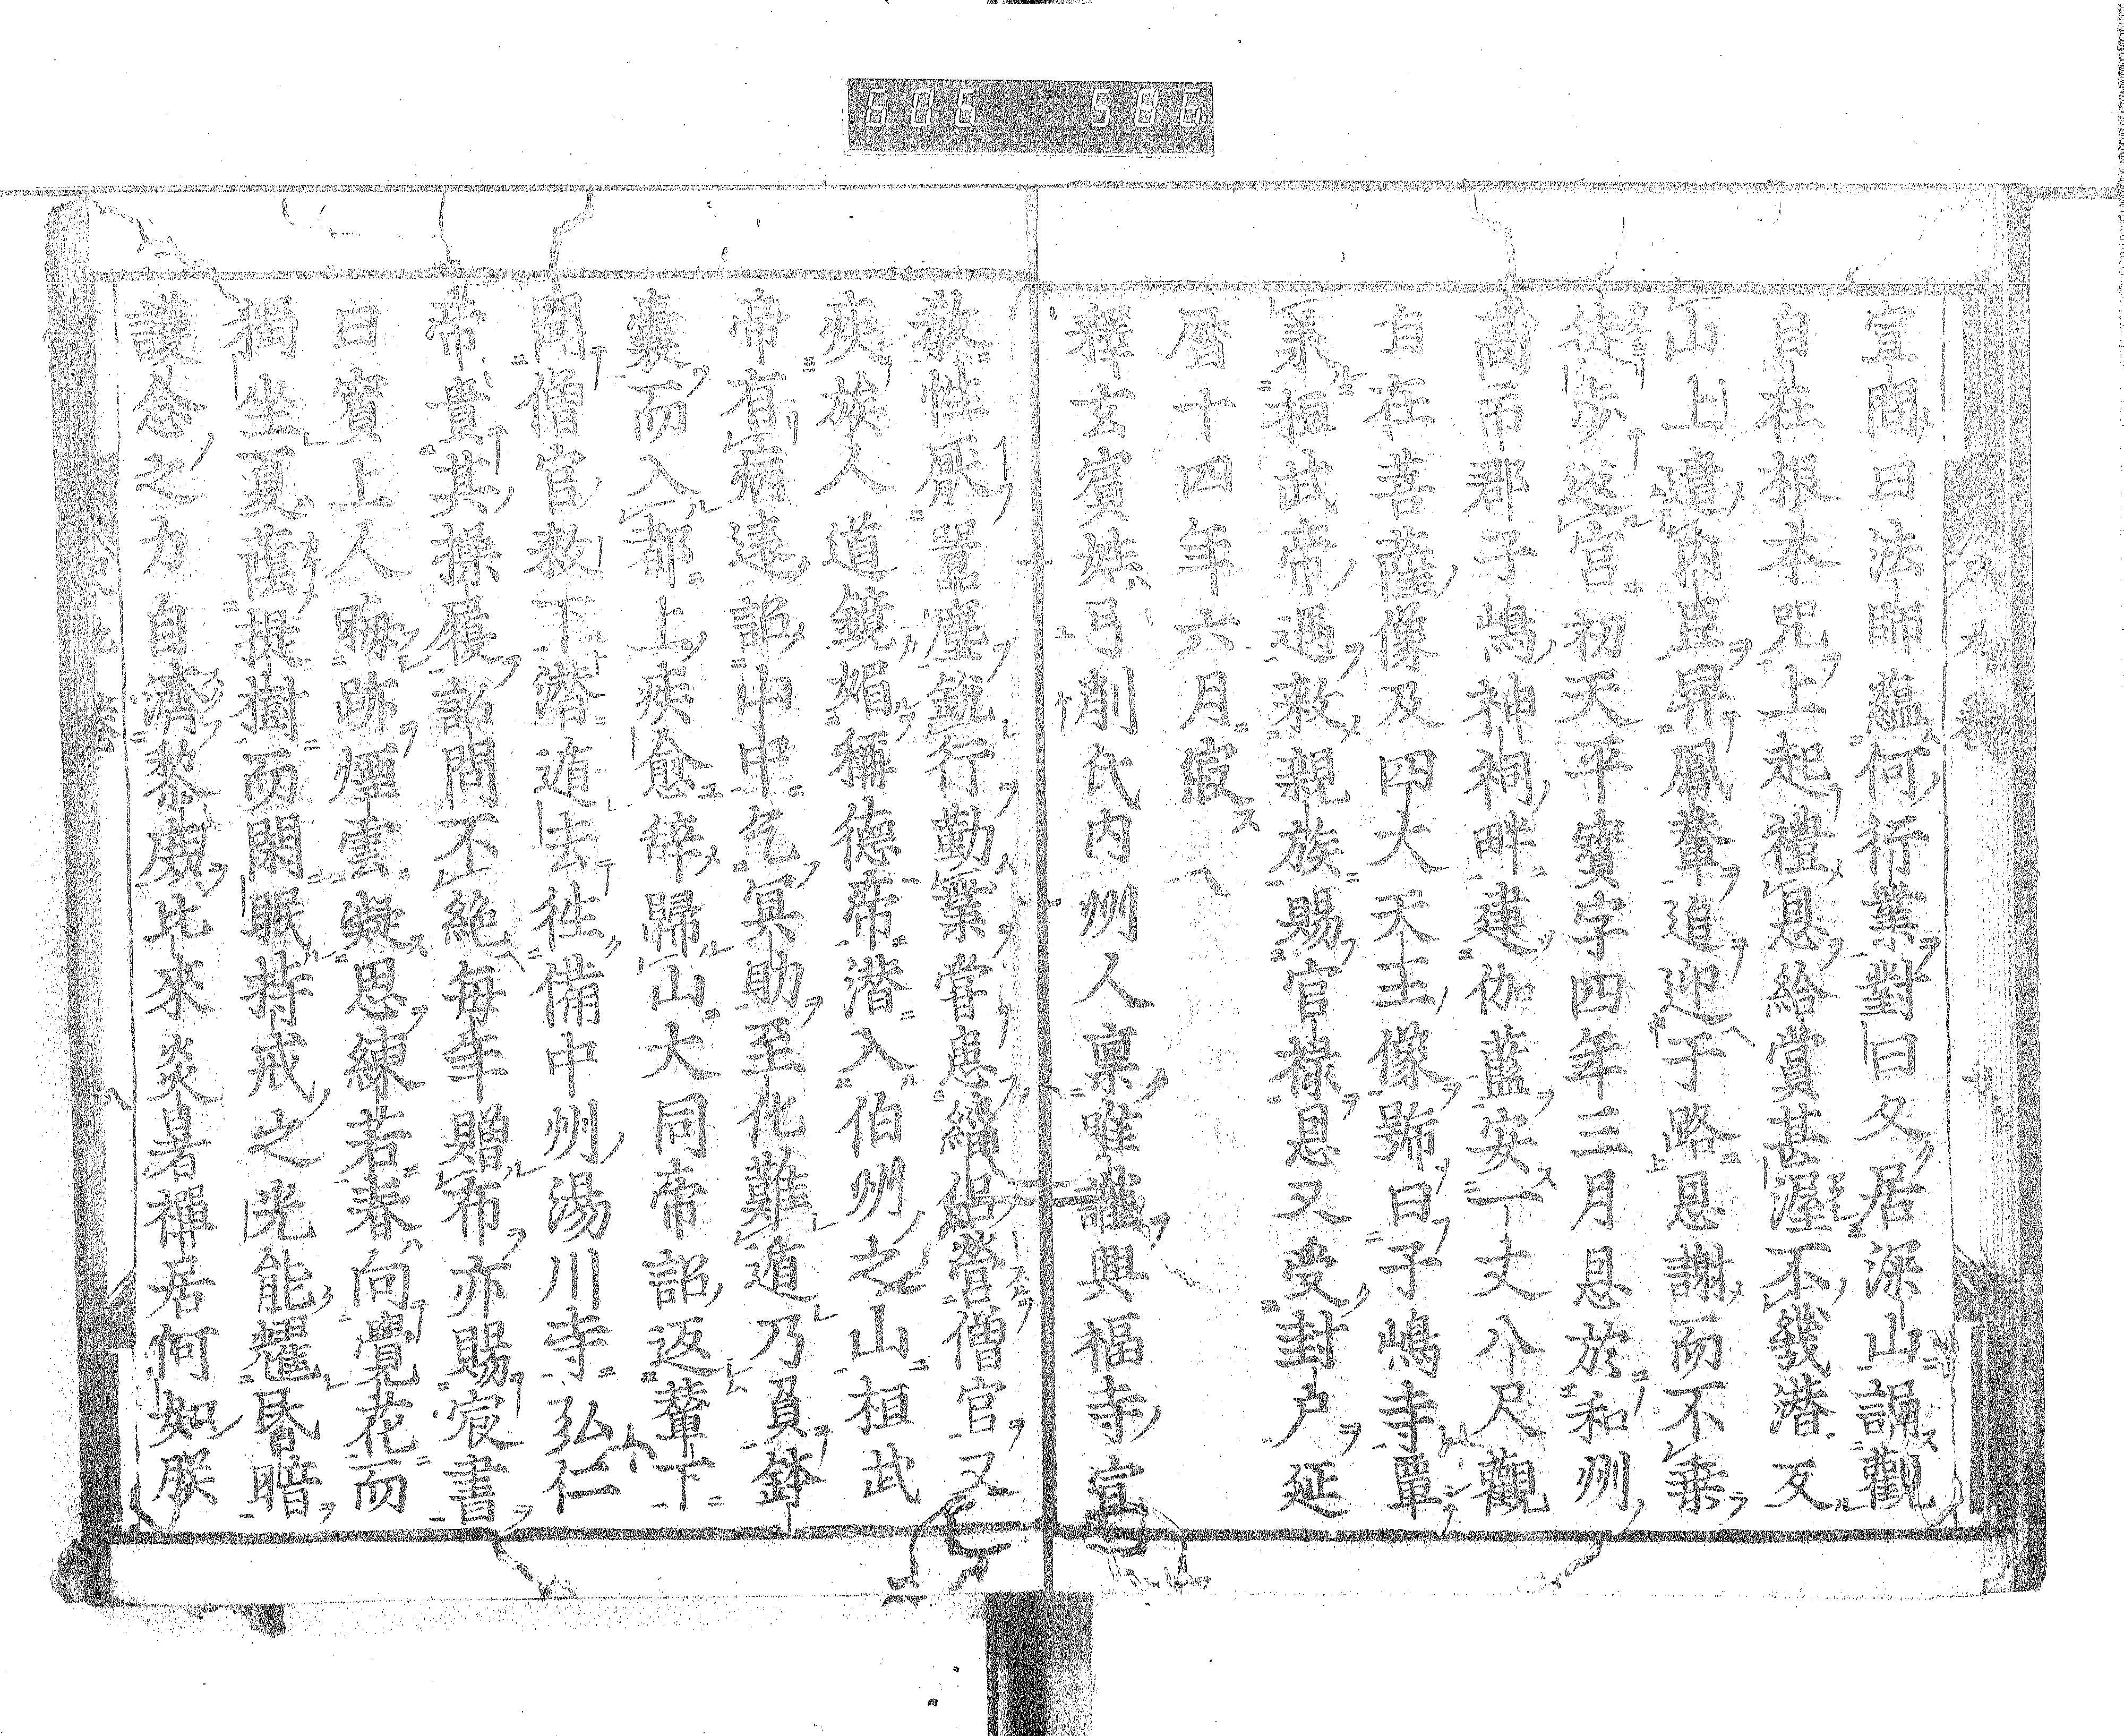 606 506
宣問曰法師蘊何行業對曰久居深山誦觀
自在根本咒上起禮恩給賞甚渥不幾潜反
山上遣內臣舁鳳輦追迎于路恩謝而不乗
徒步還宮初天平寶字四年三月恩於和州
高市郡子嶋神祠畔建伽藍安一丈八尺觀
自在菩薩像及四大天王像號曰子嶋寺單
桓武帝遇敕親族賜官祿恩又受封戶延
曆十四年六月寂
釋玄賓姓弓削氏內州人禀唯識興福寺宣
教性厭囂塵銳行勤業嘗患緇侶營僧官又
疾族人道鏡媚稱德帝潜入伯州之山桓武
帝有病遠詔山中乞冥助至化難遁乃負鉢
囊而入都上疾愈辞歸山大同帝詔返輦下
聞僧官敕下潜遁去往備中州湯川寺弘仁
帝貴其操履詔問不絕每年贈布亦賜宸書
曰賓上人晦跡煙雲凝思練若春向覺花而
獨坐夏蔭提樹而閑眠持戒之光能耀昏暗
護念之力自濟黎庶比來炎暑禪居何如朕